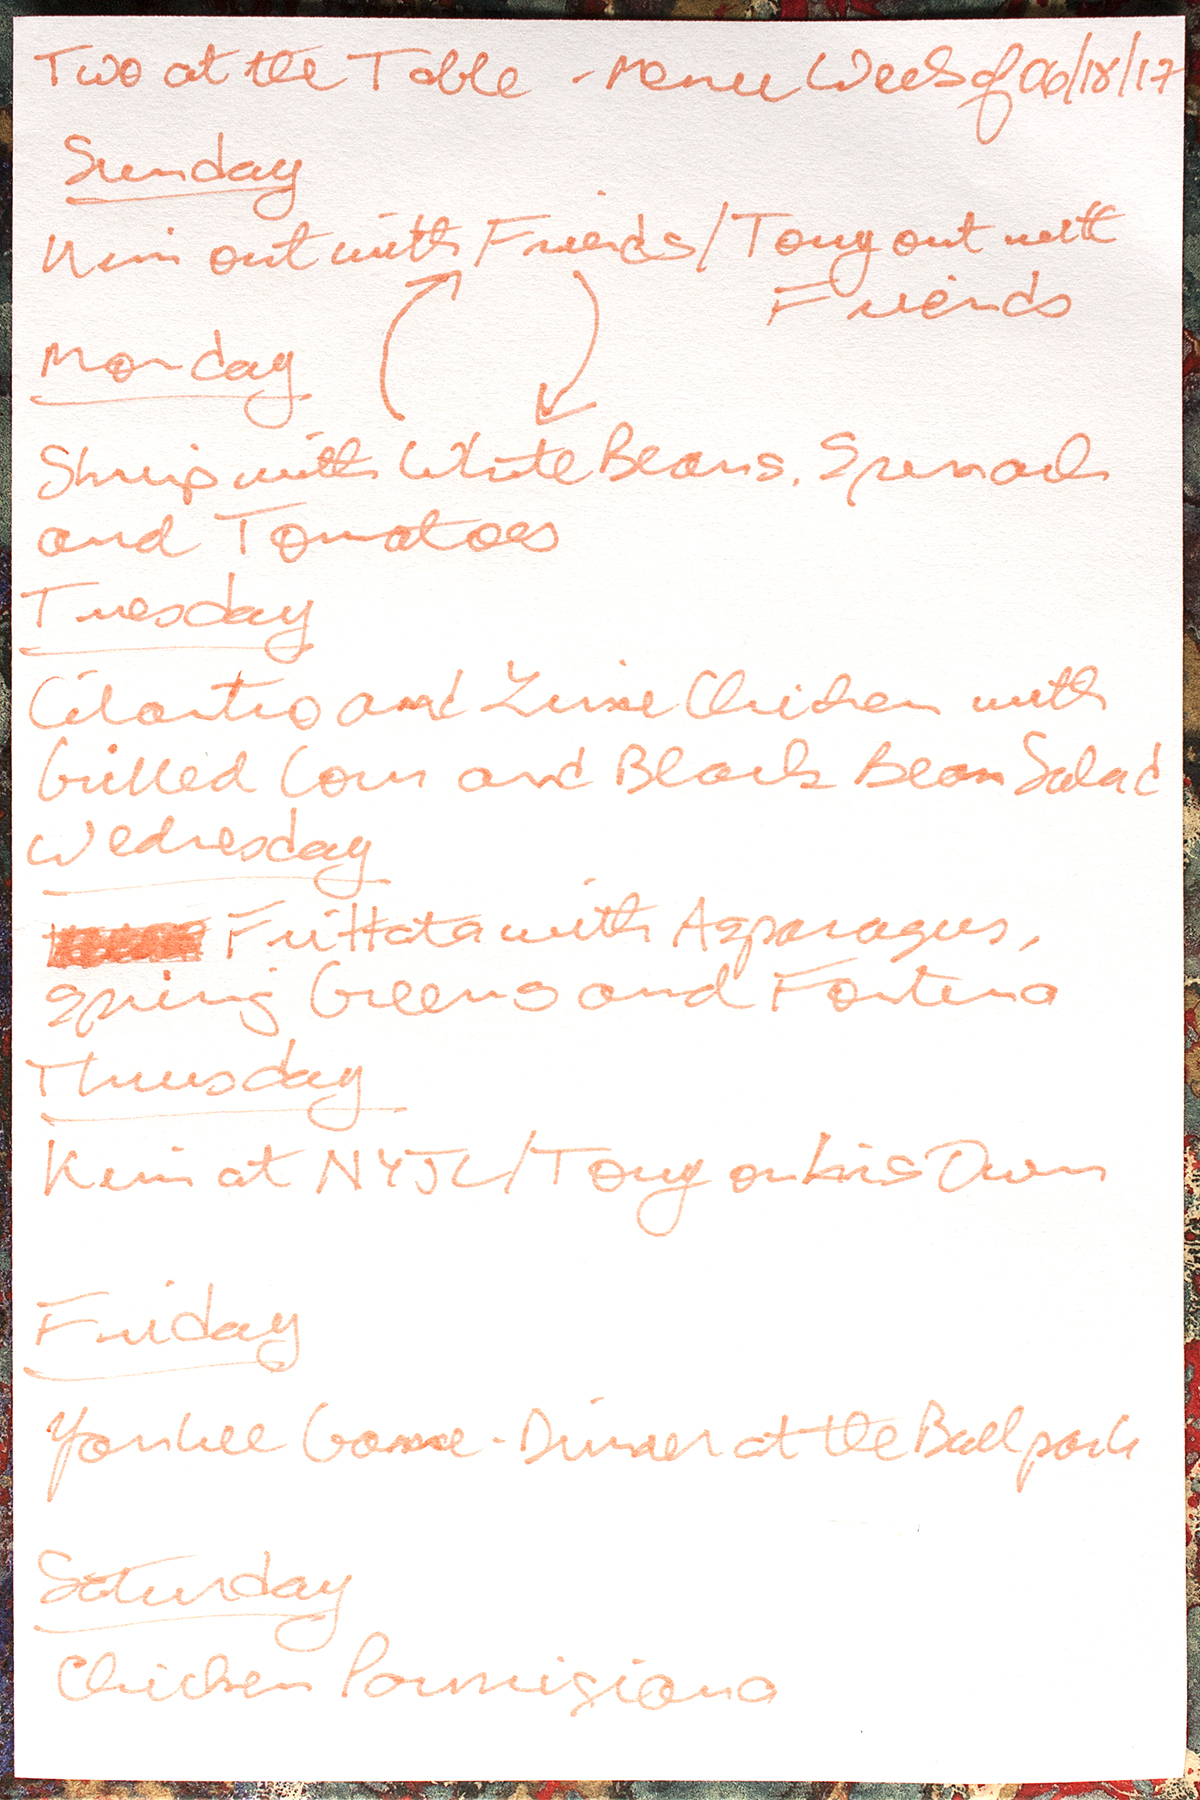 Two at the Table - Menu Week of 06/18/17
Sunday
Kim out with Friends/Tony out with
Friends
Monday
Shrimp with White Beans, Spinach
and Tomatoes
Tuesday
Cilantro and Lime Chicken with
Grilled Corn and Black Bean Salad
Wednesday
Frittata with Asparagus,
Spring Greens and Fontina
Thursday
Kim at NYJL/Tony on his Own
Friday
Yankee Game - Dinner at the Ballpark
Saturday
Chicken Parmigiana